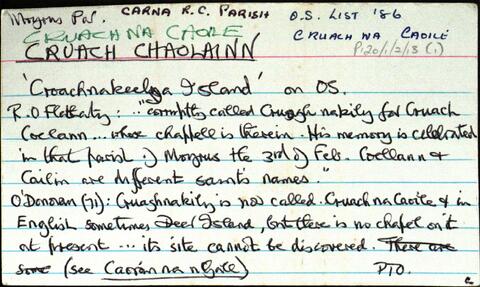 Moyrus Par. CARNA R.C. PARISH O.S. LIST '86
CRUACH NA CAOILE CRUACH NA CAOILE
CRUACH CHAOLAINN P120/1/2/13 (1)
'Croaghnakeelya Island' on OS.
R. O Flaherty: "corruptly called Cruagh nakily for Cruach
Coelann ... whose chappell is therein. His memory is celebrated
in that parish of Moyrus the 3rd of Feb. Coellann &
Cailin are different saints names."
O'Donovan (71): Cruaghnakily is now called Cruach na Caoile & in
English sometimes Deer Island, but there is no chapel on it
at present ... its site cannot be discovered. There are
some (see Caorán na nGarte) PTO.